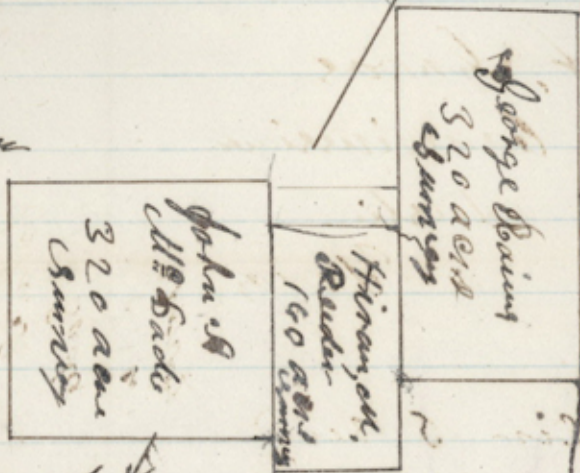 George
320 acre
Survey
Hiram M.
Reeder
160 acre
Survey
John A
320 acre
Survey